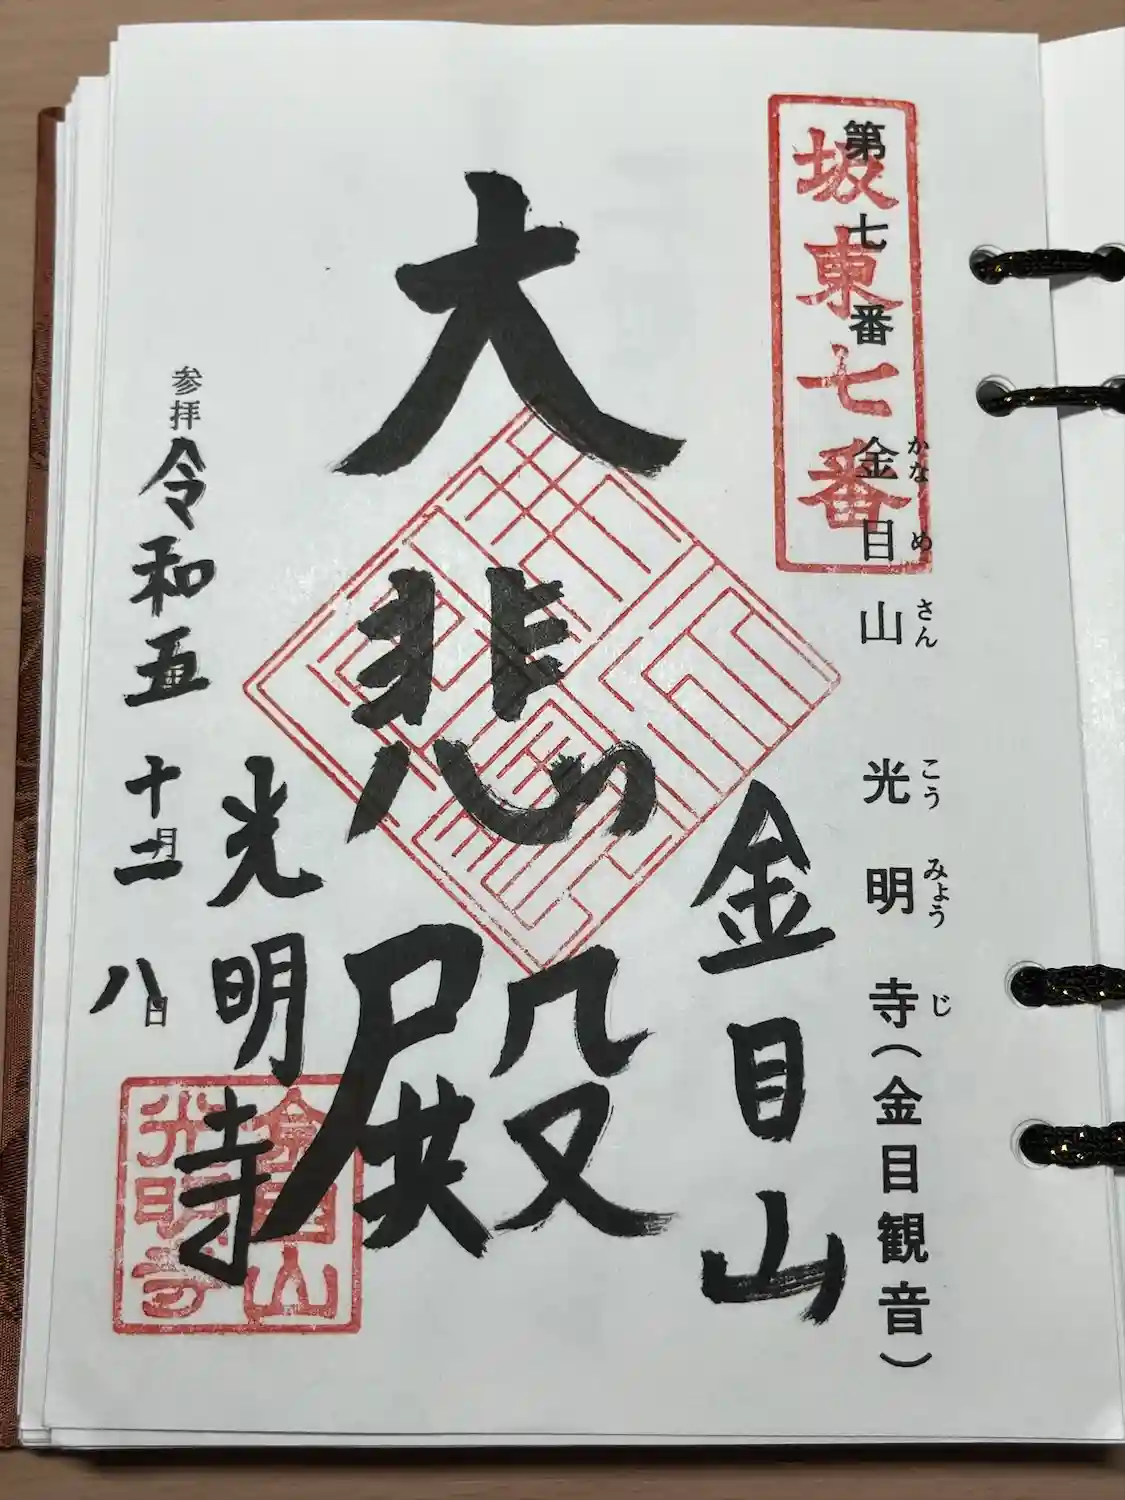 第七番 金目山 光明寺(金目観音)
かなめさん こうみょうじ
坂東七番
金目山
大悲殿
光明寺
金目山
光明寺
参拝 令和五 十二月 八日